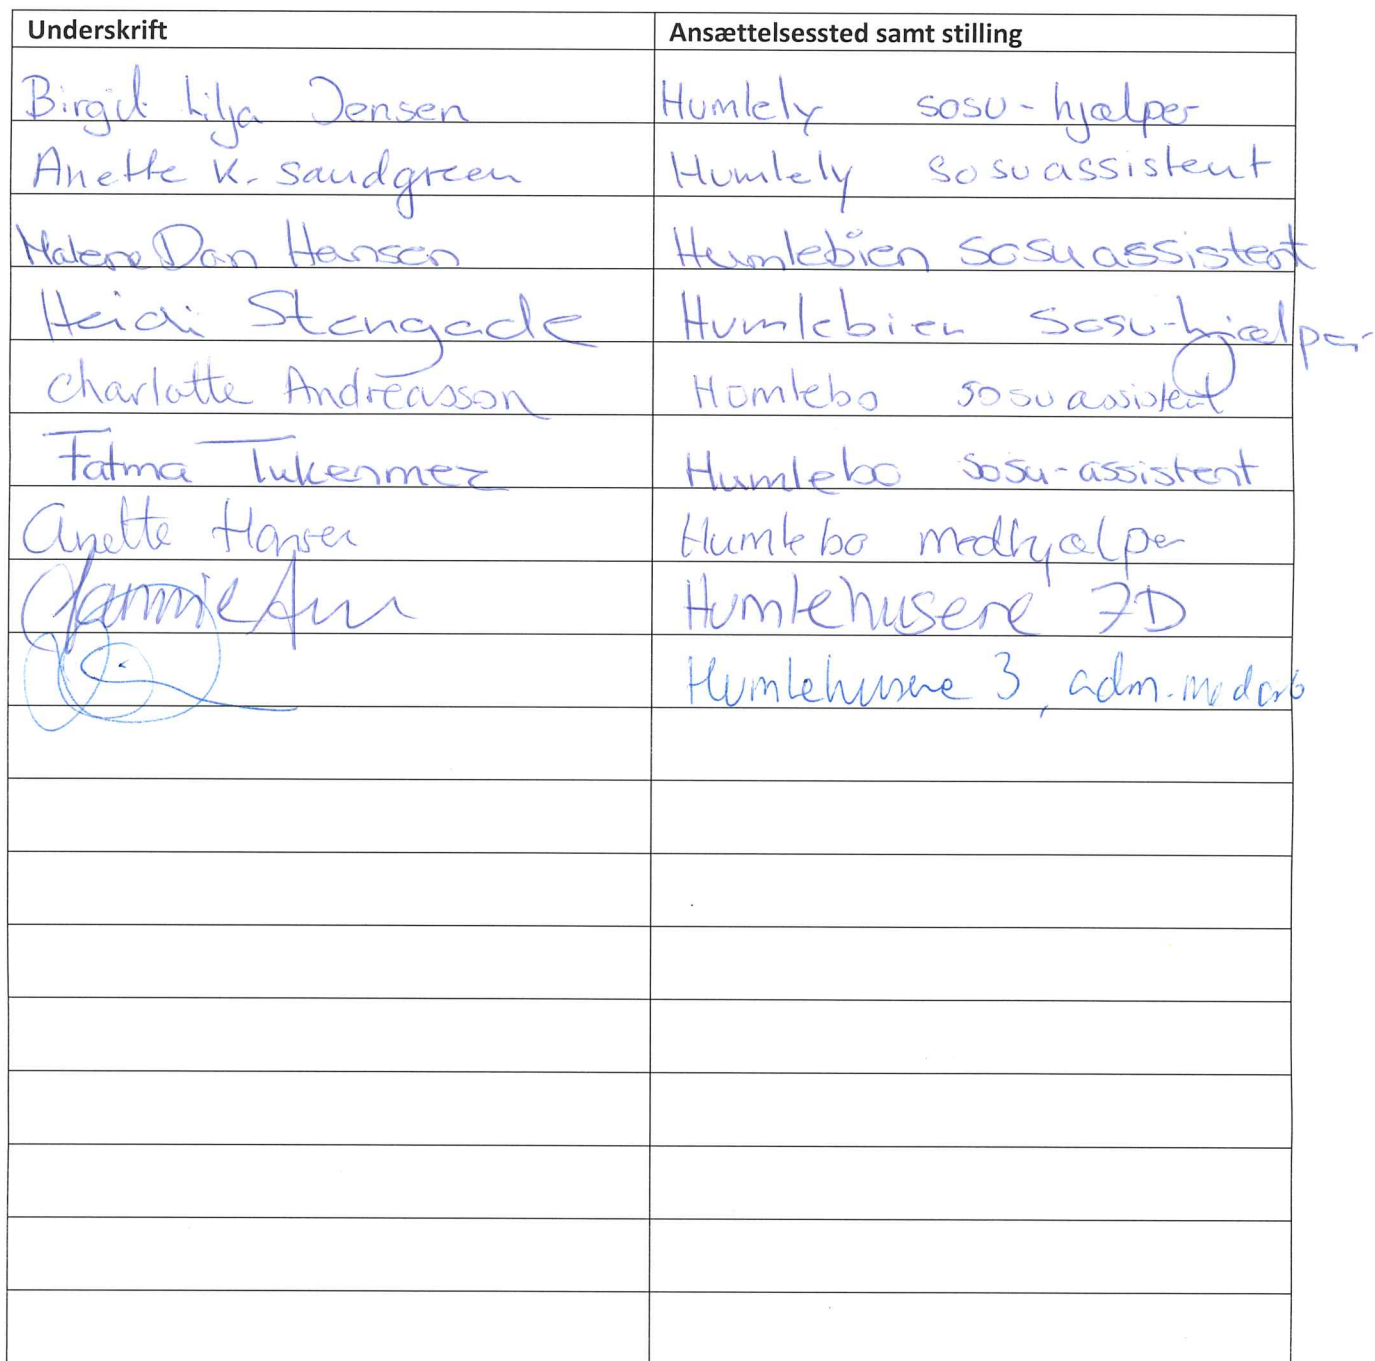 Underskrift Ansættelsessted samt stilling
Birgit Lilja Jensen Humlely sosu-hjælper
Anette K. Sandgreen Humlely sosuassistent
Malene Dan Hansen Humlebien sosuassistent
Heidi Stengade Humlebien sosu-hjælper
Charlotte Andreasson Humlebo sosuassistent
Fatma Tukenmez Humlebo sosu-assistent
Anette Hansen Humlebo medhjælper
Humlehusene 7D
Humlehusene 3, adm. medarb